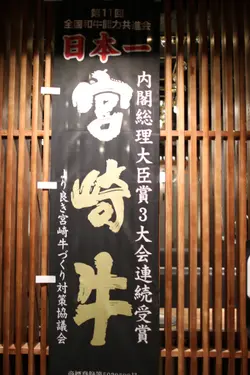 第11回
全国和牛能力共進会
日本一
内閣総理大臣賞3大会連続受賞
宮崎牛
より良き宮崎牛づくり対策協議会